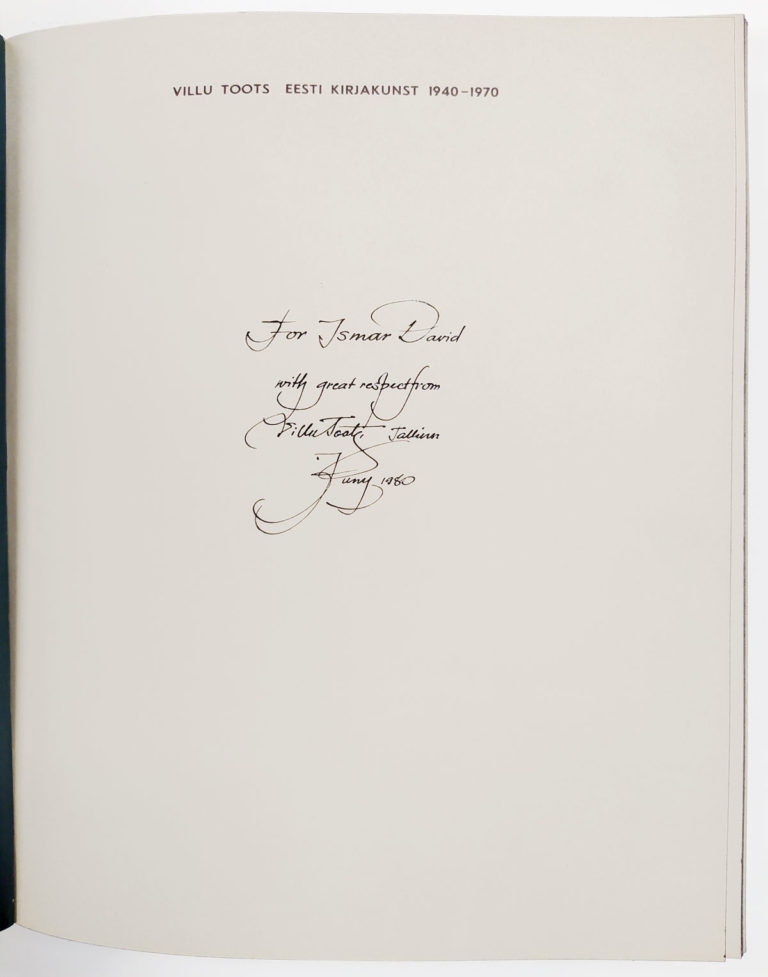 VILLU TOOTS EESTI KIRJAKUNST 1940–1970
For Ismar David
with great respect from
Villu Toots, Tallinn
Juny 1980